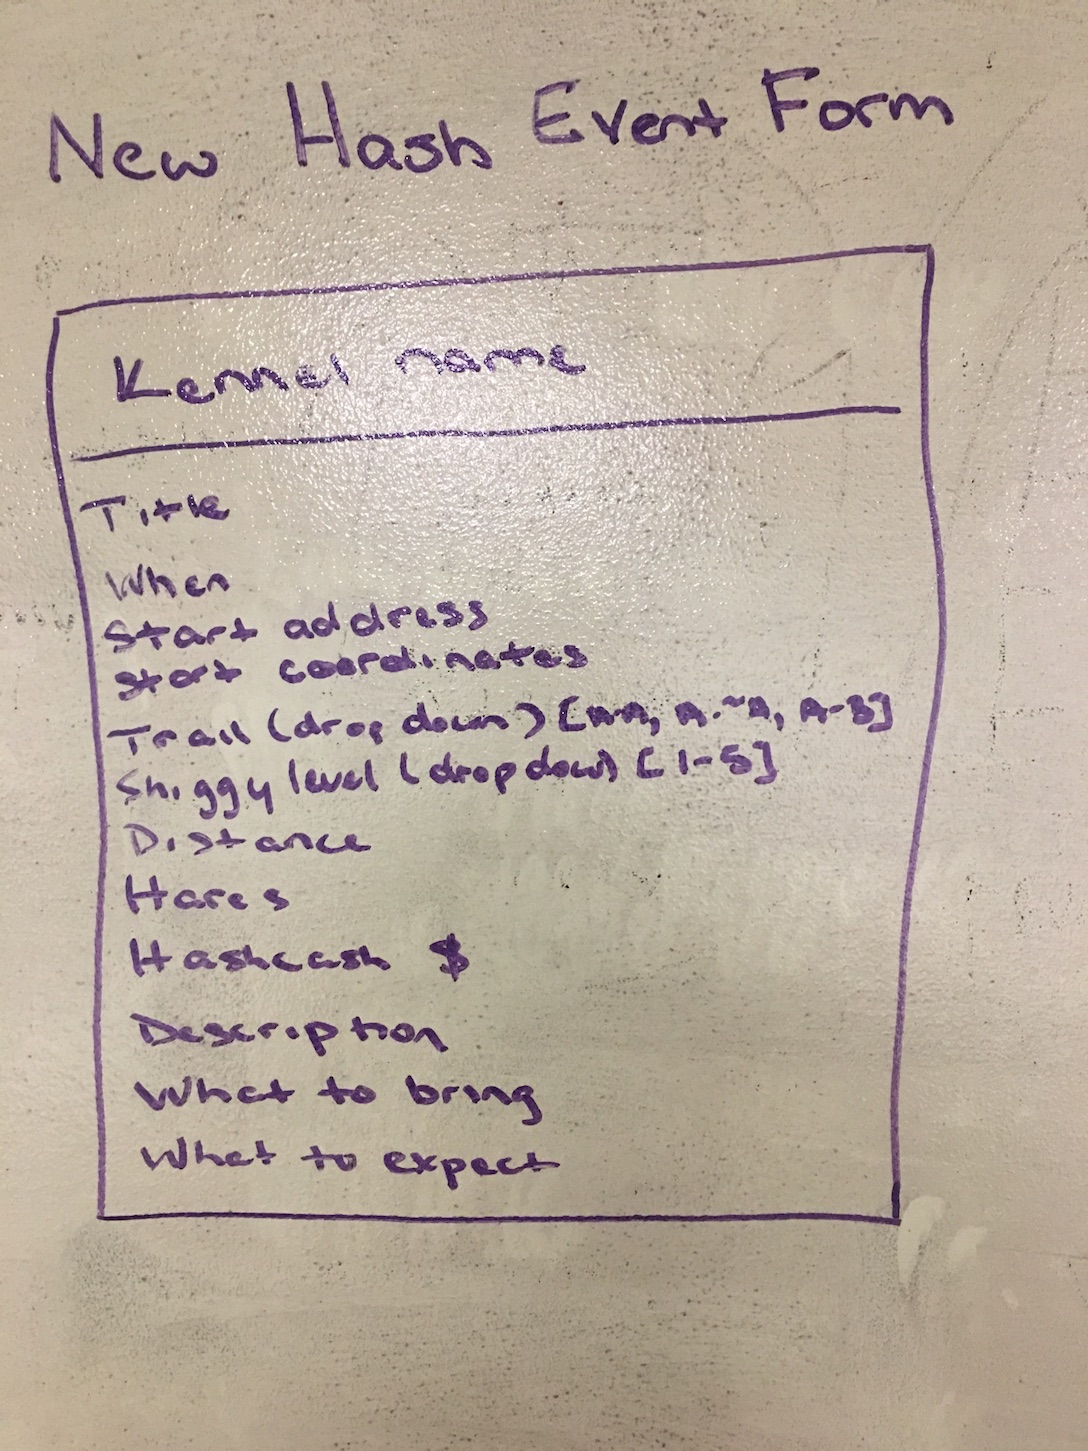 New Hash Event Form
Kennel name
Title
When
Start address
Start coordinates
Trail (drop down) [A-A, A-~A, A-B]
Shiggy level (dropdown) [1-5]
Distance
Hares
Hashcash $
Description
What to bring
What to expect